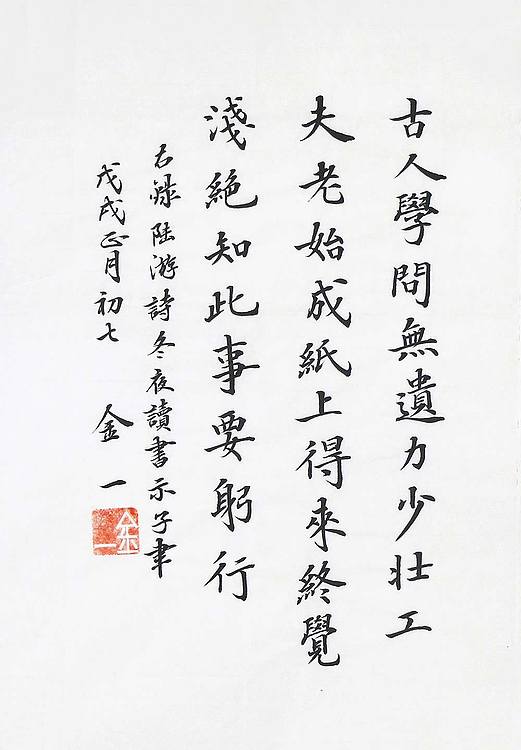 古人學問無遺力少壯工
夫老始成紙上得來終覺
淺絶知此事要躬行
右録陸游詩冬夜讀書示子聿
戊戌正月初七 金一
金一